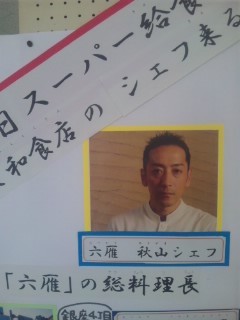 日スーパー給食
和食店のシェフ来る
六雁 秋山シェフ
「六雁」の総料理長
銀座4丁目